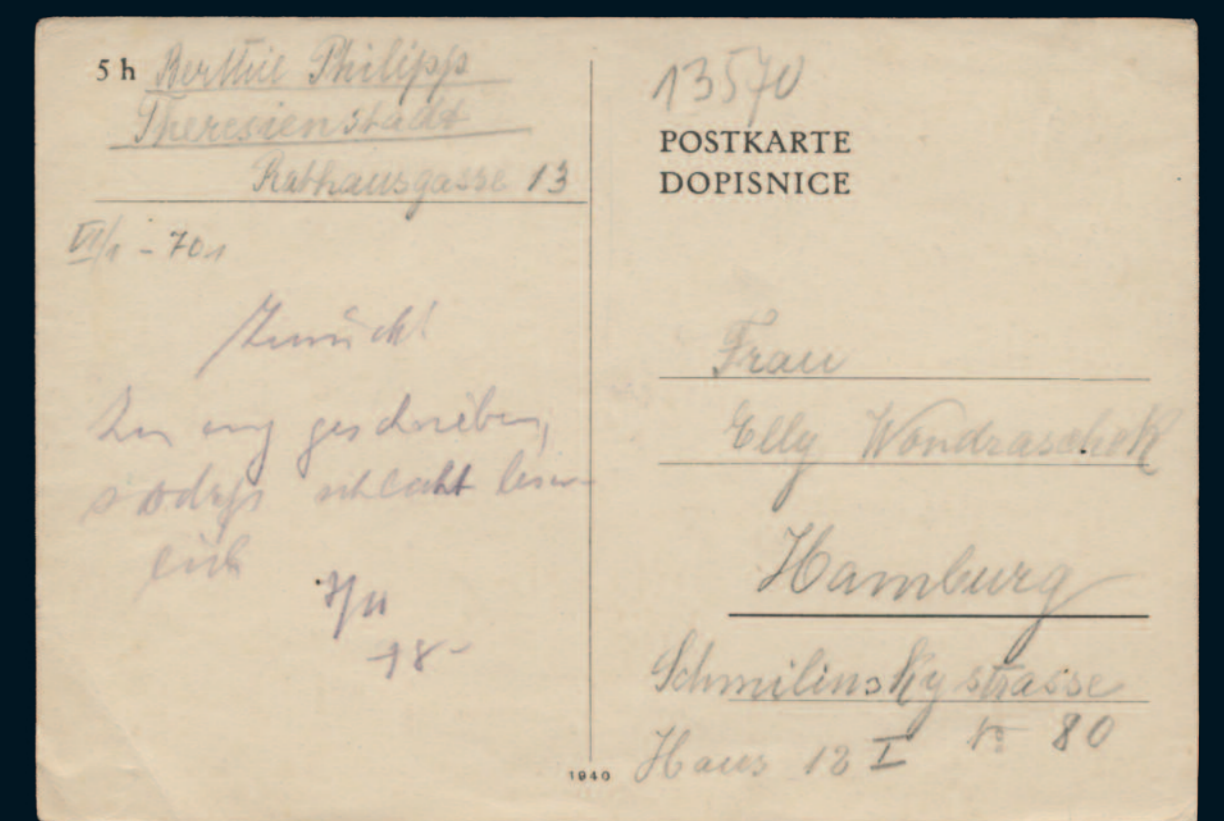 5 h Berthie Philipp
Theresienstadt
Rathausgasse 13
VI/1 - 701
Zurück!
Zu eng geschrieben,
sodaß schlecht leser-
lich
18-
1940
13570
POSTKARTE
DOPISNICE
Frau
Elly Wondraschek
Hamburg
Schmilinskystrasse
№ 80
Haus 12 I